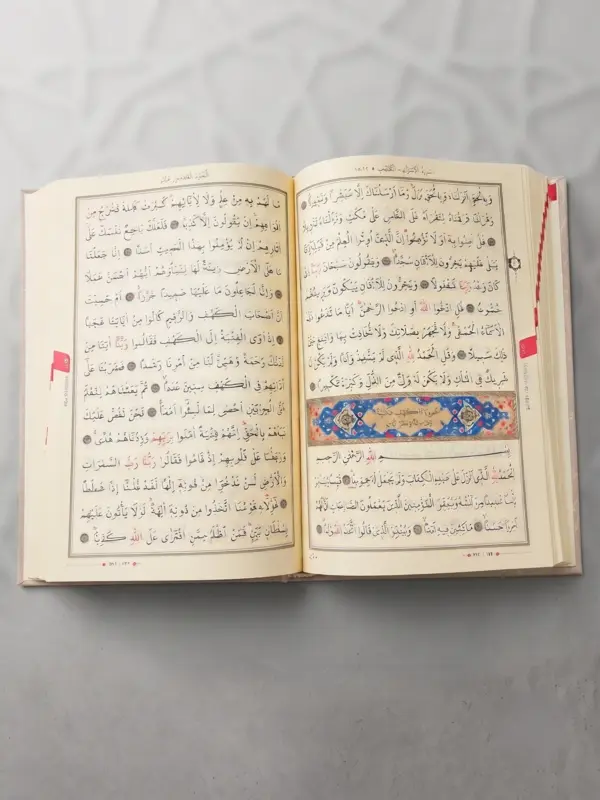 سورة الإسراء - الكهف
وَبِالْحَقِّ اَنْزَلْنَاهُ وَبِالْحَقِّ نَزَلَ وَمَا اَرْسَلْنَاكَ اِلَّا مُبَشِّرًا وَنَذِيرًا
وَقُرْاٰنًا فَرَقْنَاهُ لِتَقْرَاَهُ عَلَى النَّاسِ عَلٰى مُكْثٍ وَنَزَّلْنَاهُ تَنْزِيلًا
قُلْ اٰمِنُوا بِهِ اَوْ لَا تُؤْمِنُوا اِنَّ الَّذِينَ اُوتُوا الْعِلْمَ مِنْ قَبْلِهِ اِذَا
يُتْلٰى عَلَيْهِمْ يَخِرُّونَ لِلْاَذْقَانِ سُجَّدًا وَيَقُولُونَ سُبْحَانَ رَبِّنَا اِنْ
كَانَ وَعْدُ رَبِّنَا لَمَفْعُولًا وَيَخِرُّونَ لِلْاَذْقَانِ يَبْكُونَ وَيَزِيدُهُمْ
خُشُوعًا قُلِ ادْعُوا اللّٰهَ اَوِ ادْعُوا الرَّحْمٰنَ اَيًّا مَا تَدْعُوا فَلَهُ
الْاَسْمَاءُ الْحُسْنٰى وَلَا تَجْهَرْ بِصَلَاتِكَ وَلَا تُخَافِتْ بِهَا وَابْتَغِ بَيْنَ
ذٰلِكَ سَبِيلًا وَقُلِ الْحَمْدُ لِلّٰهِ الَّذِي لَمْ يَتَّخِذْ وَلَدًا وَلَمْ يَكُنْ لَهُ
شَرِيكٌ فِي الْمُلْكِ وَلَمْ يَكُنْ لَهُ وَلِيٌّ مِنَ الذُّلِّ وَكَبِّرْهُ تَكْبِيرًا
سورة الكهف
بِسْمِ اللّٰهِ الرَّحْمٰنِ الرَّحِيمِ
اَلْحَمْدُ لِلّٰهِ الَّذِي اَنْزَلَ عَلٰى عَبْدِهِ الْكِتَابَ وَلَمْ يَجْعَلْ لَهُ عِوَجًا قَيِّمًا لِيُنْذِرَ
بَاْسًا شَدِيدًا مِنْ لَدُنْهُ وَيُبَشِّرَ الْمُؤْمِنِينَ الَّذِينَ يَعْمَلُونَ الصَّالِحَاتِ اَنَّ لَهُمْ
اَجْرًا حَسَنًا مَاكِثِينَ فِيهِ اَبَدًا وَيُنْذِرَ الَّذِينَ قَالُوا اتَّخَذَ اللّٰهُ وَلَدًا
الجزء الخامس عشر
مَا لَهُمْ بِهِ مِنْ عِلْمٍ وَلَا لِاٰبَائِهِمْ كَبُرَتْ كَلِمَةً تَخْرُجُ مِنْ
اَفْوَاهِهِمْ اِنْ يَقُولُونَ اِلَّا كَذِبًا فَلَعَلَّكَ بَاخِعٌ نَفْسَكَ عَلٰى
اٰثَارِهِمْ اِنْ لَمْ يُؤْمِنُوا بِهٰذَا الْحَدِيثِ اَسَفًا اِنَّا جَعَلْنَا
مَا عَلَى الْاَرْضِ زِينَةً لَهَا لِنَبْلُوَهُمْ اَيُّهُمْ اَحْسَنُ عَمَلًا
وَاِنَّا لَجَاعِلُونَ مَا عَلَيْهَا صَعِيدًا جُرُزًا اَمْ حَسِبْتَ
اَنَّ اَصْحَابَ الْكَهْفِ وَالرَّقِيمِ كَانُوا مِنْ اٰيَاتِنَا عَجَبًا
اِذْ اَوَى الْفِتْيَةُ اِلَى الْكَهْفِ فَقَالُوا رَبَّنَا اٰتِنَا مِنْ
لَدُنْكَ رَحْمَةً وَهَيِّئْ لَنَا مِنْ اَمْرِنَا رَشَدًا فَضَرَبْنَا عَلٰى
اٰذَانِهِمْ فِي الْكَهْفِ سِنِينَ عَدَدًا ثُمَّ بَعَثْنَاهُمْ لِنَعْلَمَ
اَيُّ الْحِزْبَيْنِ اَحْصٰى لِمَا لَبِثُوا اَمَدًا نَحْنُ نَقُصُّ عَلَيْكَ
نَبَاَهُمْ بِالْحَقِّ اِنَّهُمْ فِتْيَةٌ اٰمَنُوا بِرَبِّهِمْ وَزِدْنَاهُمْ هُدًى
وَرَبَطْنَا عَلٰى قُلُوبِهِمْ اِذْ قَامُوا فَقَالُوا رَبُّنَا رَبُّ السَّمٰوَاتِ
وَالْاَرْضِ لَنْ نَدْعُوَا مِنْ دُونِهِ اِلٰهًا لَقَدْ قُلْنَا اِذًا شَطَطًا
هٰؤُلَاءِ قَوْمُنَا اتَّخَذُوا مِنْ دُونِهِ اٰلِهَةً لَوْلَا يَاْتُونَ عَلَيْهِمْ
بِسُلْطَانٍ بَيِّنٍ فَمَنْ اَظْلَمُ مِمَّنِ افْتَرٰى عَلَى اللّٰهِ كَذِبًا